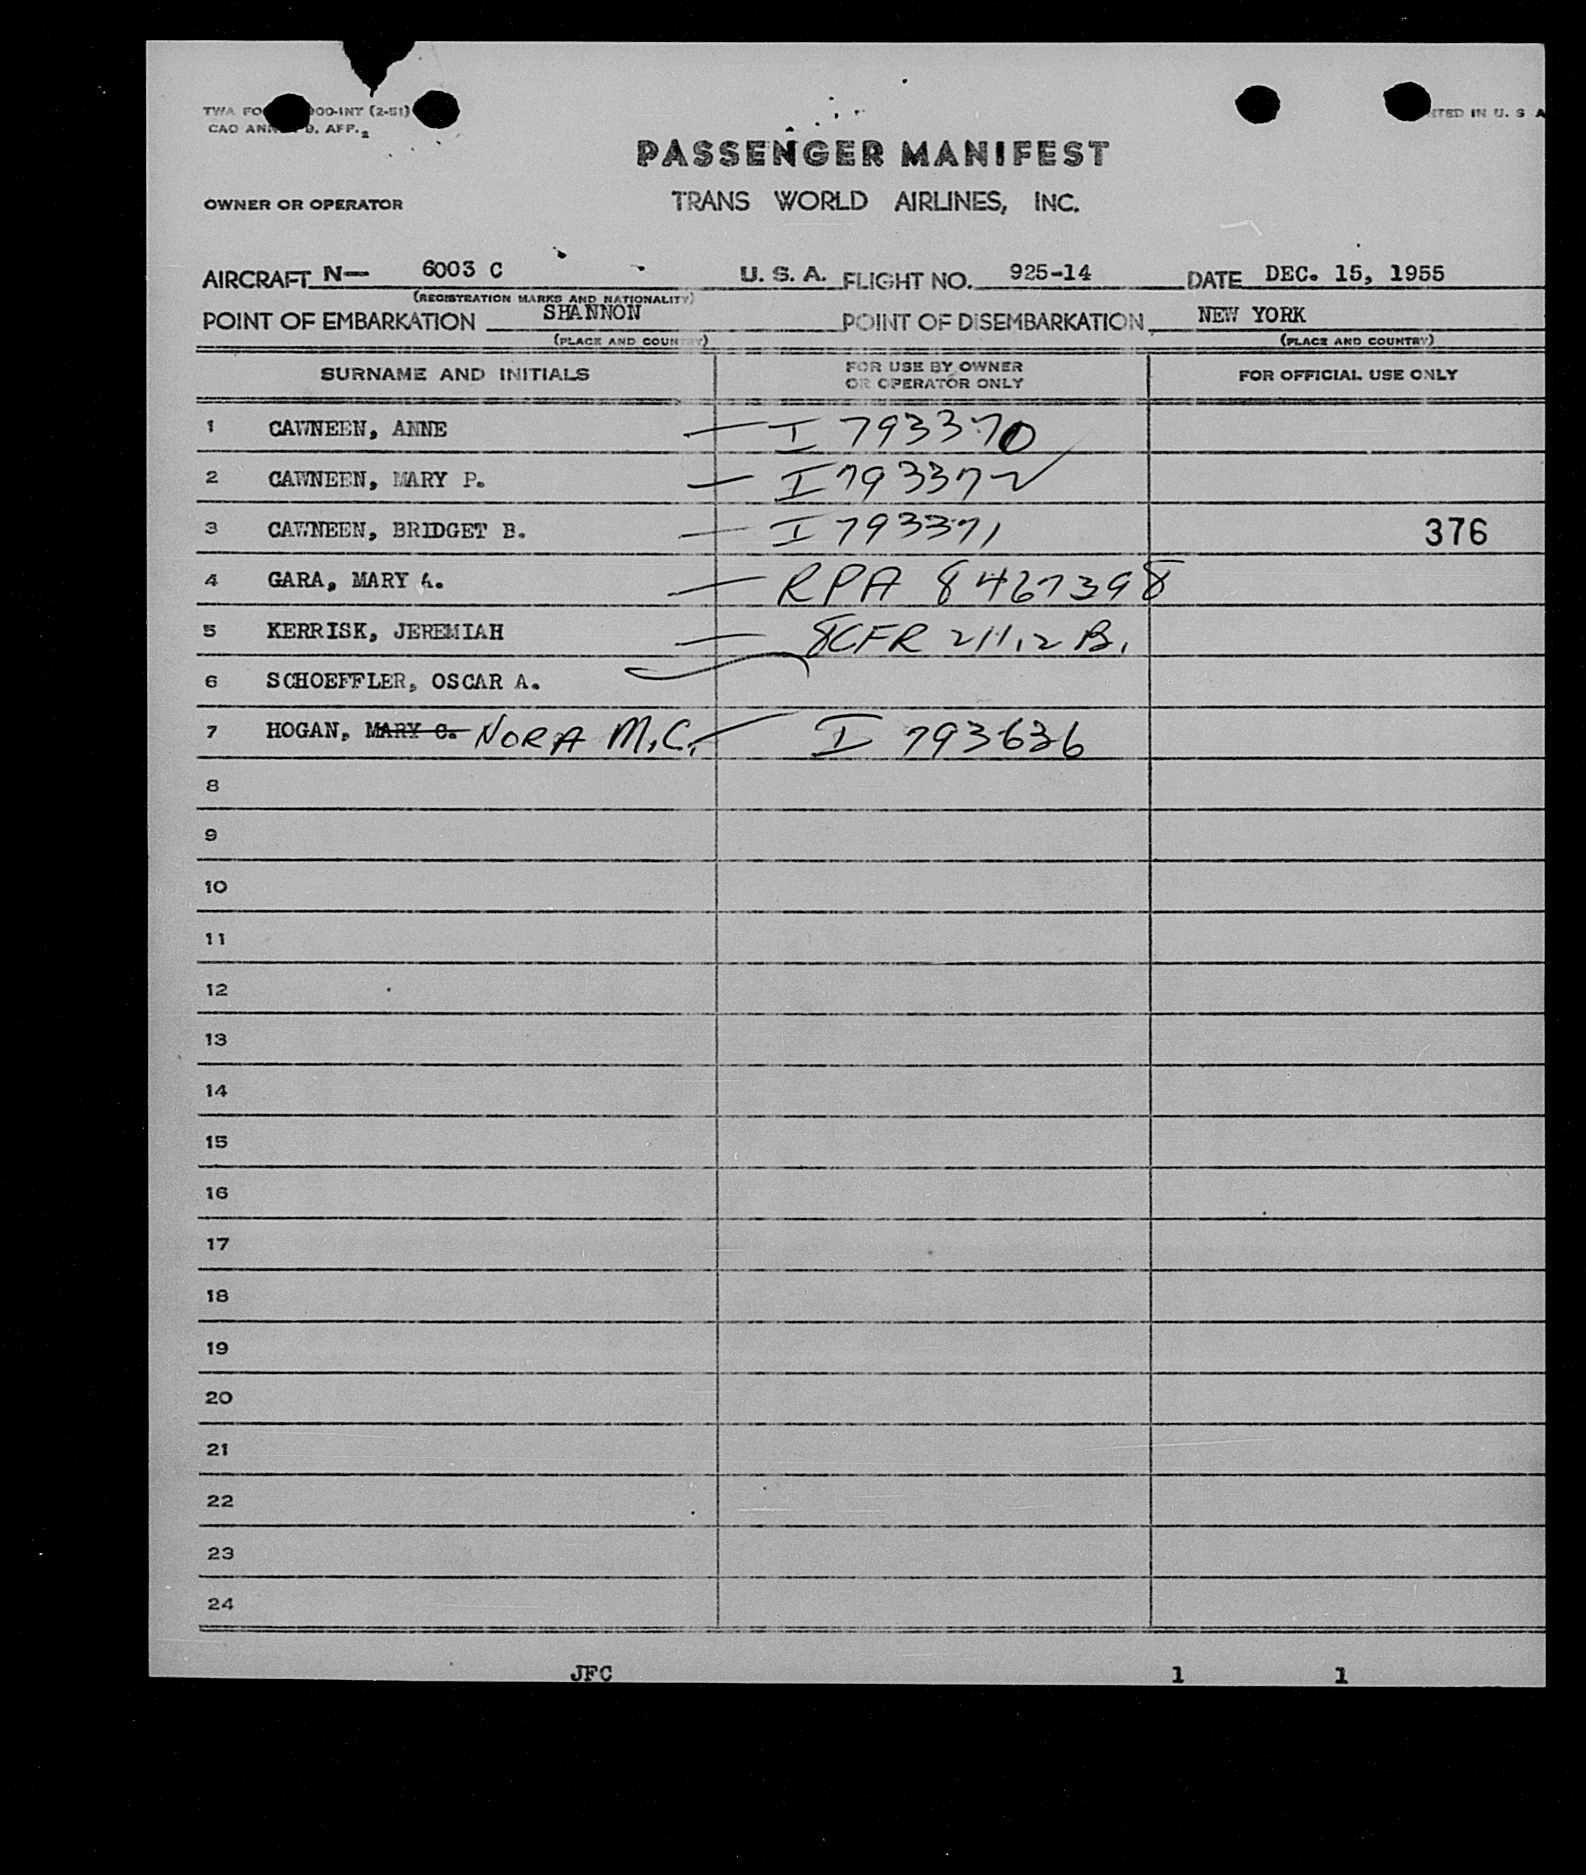 TWA FO 000-INT (2-51)
CAO ANN 9, AFF. 2
PASSENGER MANIFEST
OWNER OR OPERATOR TRANS WORLD AIRLINES, INC.
AIRCRAFT N— 6003 C U. S. A. FLIGHT NO. 925-14 DATE DEC. 15, 1955
(REGISTRATION MARKS AND NATIONALITY)
POINT OF EMBARKATION SHANNON POINT OF DISEMBARKATION NEW YORK
(PLACE AND COUNTRY) (PLACE AND COUNTRY)
SURNAME AND INITIALS FOR USE BY OWNER OR OPERATOR ONLY FOR OFFICIAL USE ONLY
1 CAWNEEN, ANNE — I 793370
2 CAWNEEN, MARY P. — I 793372
3 CAWNEEN, BRIDGET B. — I 793371 376
4 GARA, MARY A. — RPA 8467398
5 KERRISK, JEREMIAH — 8CFR 211.2 B.
6 SCHOEFFLER, OSCAR A.
7 HOGAN, MARY C. NORA M.C. — I 793636
8
9
10
11
12
13
14
15
16
17
18
19
20
21
22
23
24
JFC 1 1